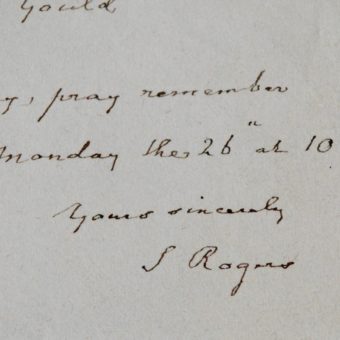 Gould
y, pray remember
Monday the 26" at 10
Yours sincerely
S Rogers